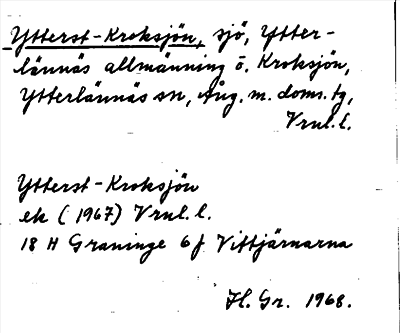 Ytterst-Kroksjön, sjö, Ytter-
lännäs allmänning ö. Kroksjön,
Ytterlännäs sn, Ång. m. doms. tg,
Vrnl. l.
Ytterst-Kroksjön
ek (1967) Vrnl. l.
18 H Graninge 6 f Vittjärnarna
H. Gr. 1968.